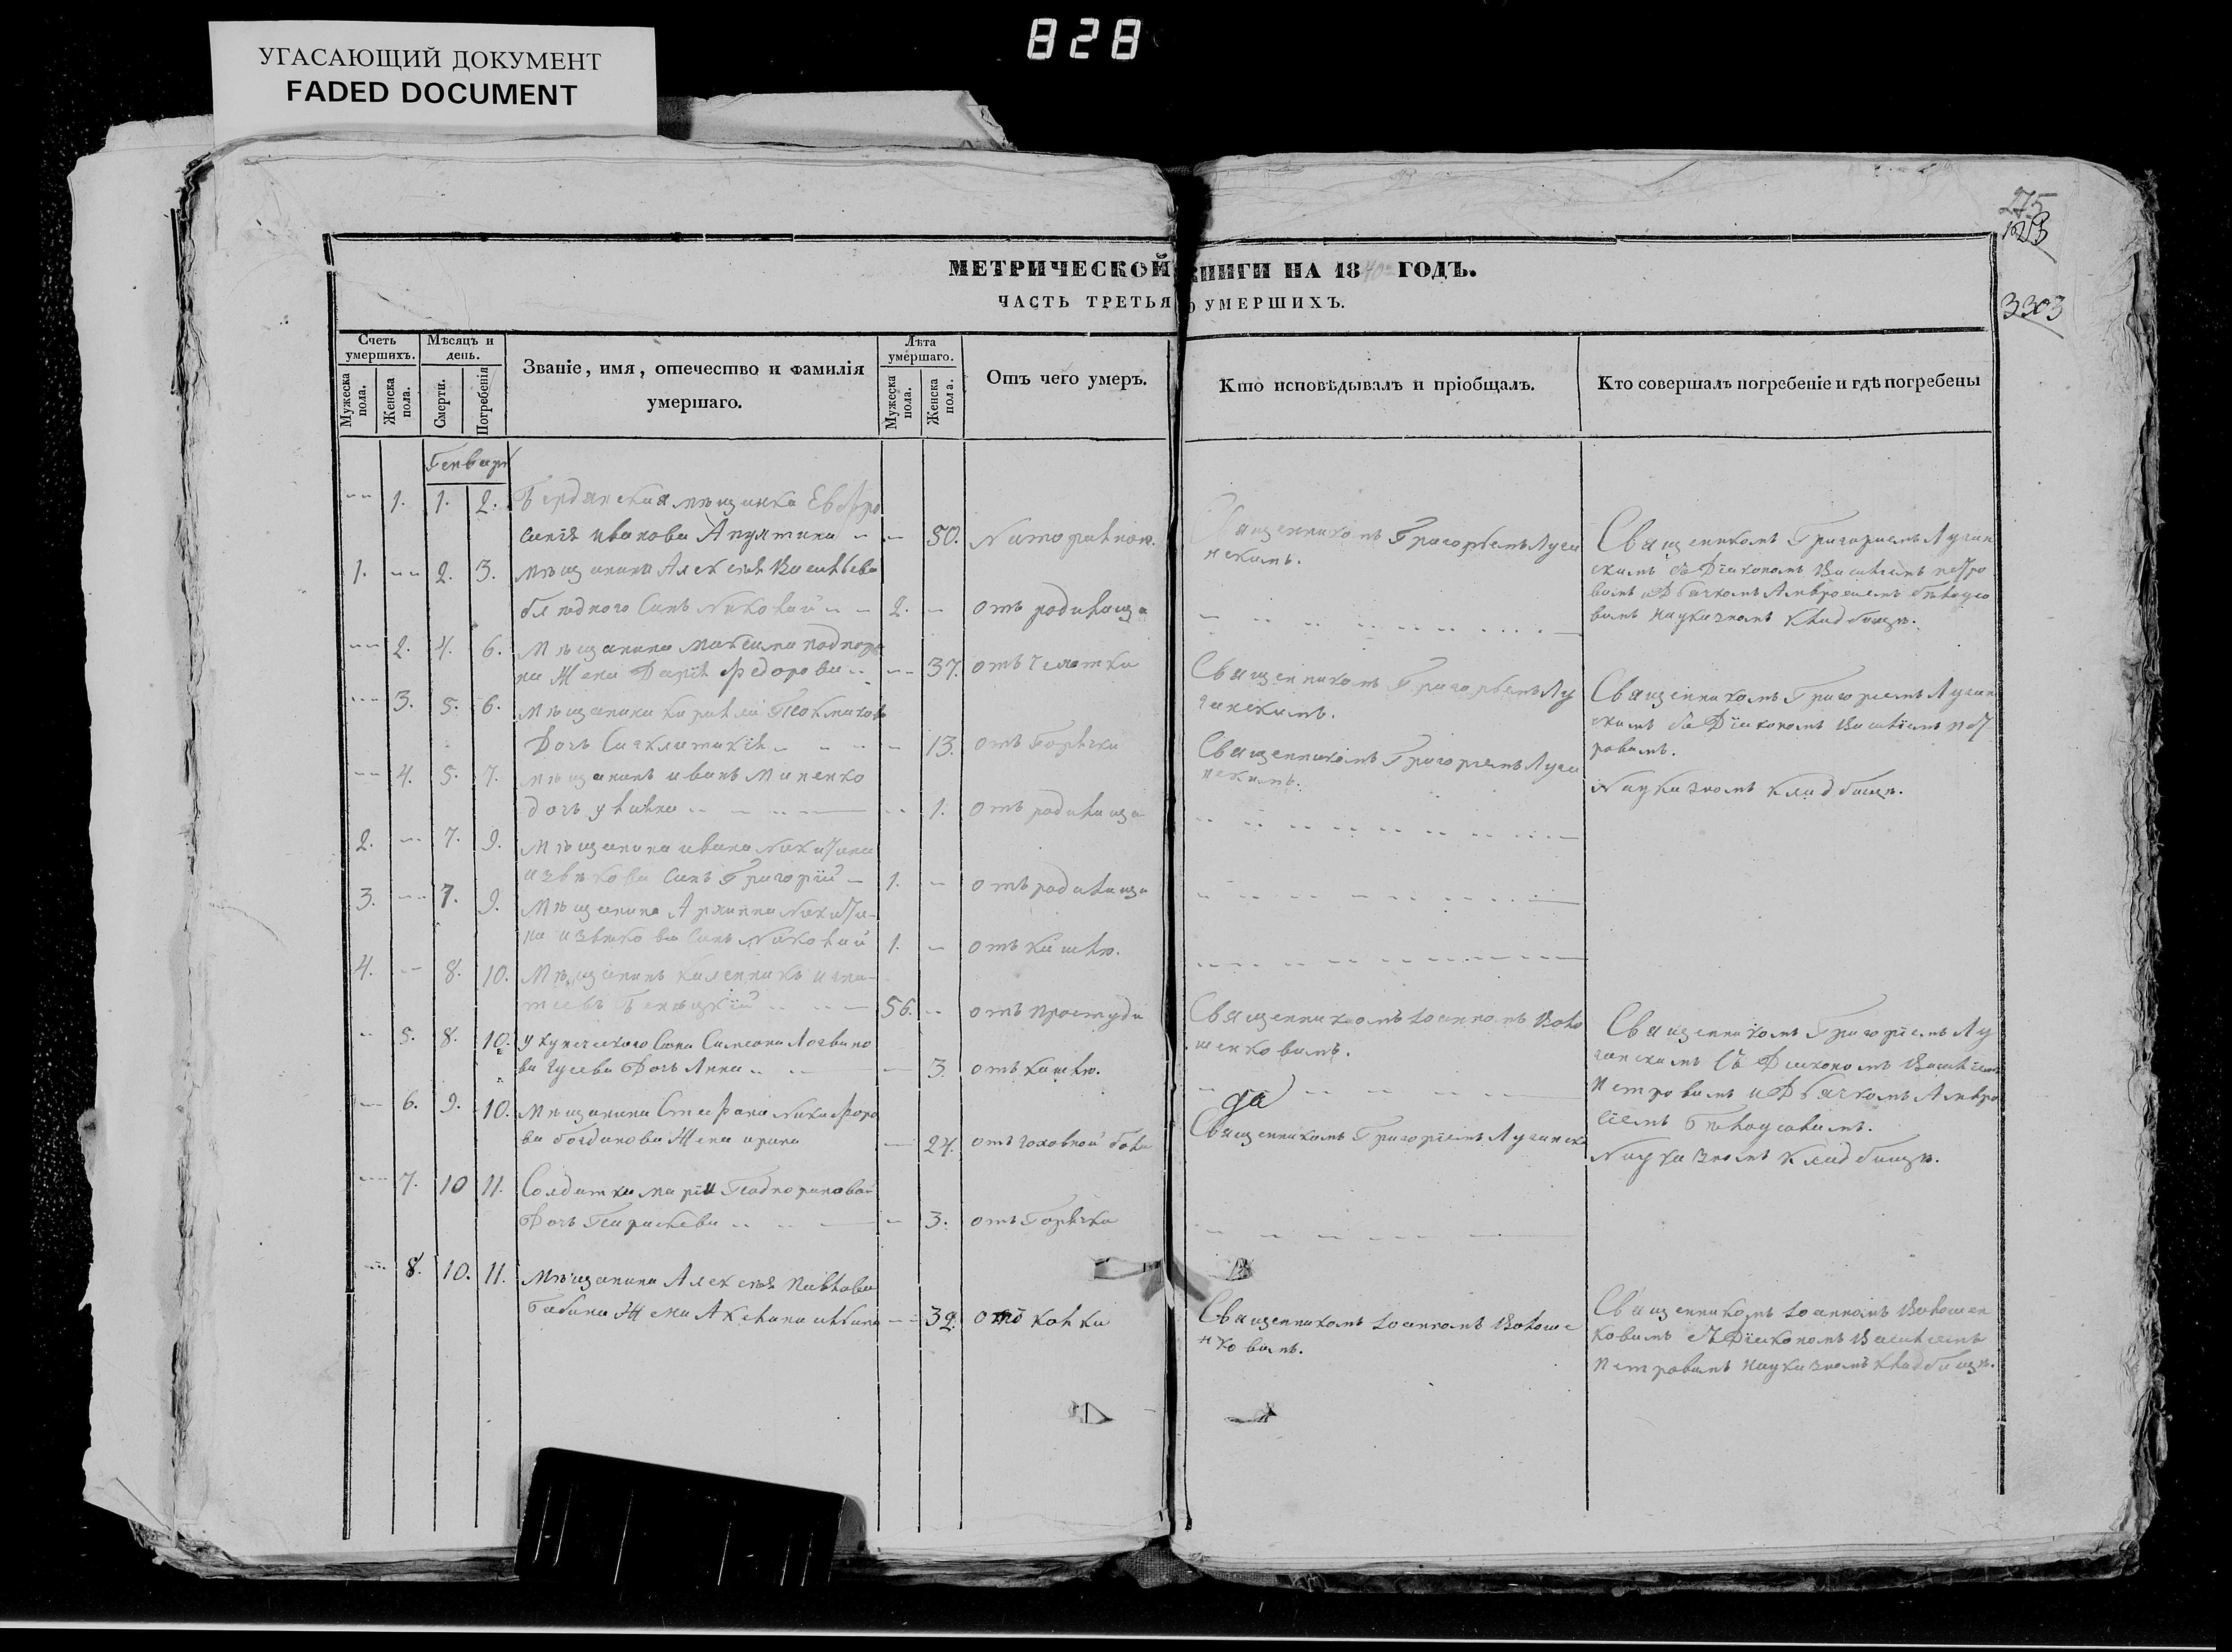 828
УГАСАЮЩИЙ ДОКУМЕНТ
FADED DOCUMENT
275
3303
МЕТРИЧЕСКОЙ КНИГИ НА 1840 ГОДЪ.
ЧАСТЬ ТРЕТЬЯ О УМЕРШИХЪ.
Счетъ умершихъ.
Мужеска пола.
Женска пола.
Мѣсяцъ и день.
Смерти.
Погребенія
Званіе, имя, отечество и фамилія
умершаго.
Лѣта умершаго.
Мужеска пола.
Женска пола.
Отъ чего умеръ.
Кто исповѣдывалъ и пріобщалъ.
Кто совершалъ погребеніе и гдѣ погребены
Генваря
1. 1. 2. Бердянская мѣщанка Евфро
синія иванова 50.
Священникомъ Григоріемъ Луга
нскимъ.
Священникомъ Григоріемъ Луган
скимъ съ Діакономъ Василіемъ петро
вымъ и Дьячкомъ Амвросіемъ бѣлоусо
вымъ на указномъ кладбищѣ.
1. 2. 3. мѣщанина Алексѣя Васильева
сынъ Николай 2. отъ родимца
2. 4. 6. Мѣщанина максима
на Жена Дарія федорова 37. отъ чахотки
Священникомъ Григоріемъ Лу
ганскимъ.
Священникомъ Григоріемъ Луган
скимъ съ Діакономъ Василіемъ пет
ровымъ.
На указномъ кладбищѣ.
3. 5. 6. мѣщанина кирила
Дочь Синклитикія 13. отъ Горячки
Священникомъ Григоріемъ Луга
нскимъ.
4. 5. 7. мѣщанинъ иванъ миненко
дочь уліана 1. отъ родимца
2. 7. 9. Мѣщанина ивана Никитина
извѣкова сынъ Григорій 1. отъ родимца
3. 7. 9. Мѣщанина Архипа Никити-
на извѣкова сынъ Николай 1. отъ кашлю.
4. 8. 10. Мѣщанинъ каленникъ игна-
тьевъ 56. отъ простуди
Священникомъ Іоанномъ Воло
шенковымъ.
Священникомъ Григоріемъ Лу
ганскимъ съ Діакономъ Василіемъ
Петровымъ и Дьячкомъ Амвро
сіемъ Бѣлоусовымъ.
На указномъ кладбищѣ.
5. 8. 10. у купеческого сына Симеона Логвино
ва гусева Дочь Анна 3. отъ кашлю.
6. 9. 10. Мѣщанина Стефана Никифоро
ва богданова Жена ирина 24. отъ головной боли
да
Священникомъ Григоріемъ Луганск
7. 10 11. Солдатки маріи
Дочь Параскева 3. отъ Горячки
8. 10. 11. Мѣщанина Алексѣя павлова
бабина Жена Аксенія 32. отъ колки
Священникомъ Іоанномъ Волоше
нковымъ.
Священникомъ Іоанномъ Волошен
ковымъ съ Діакономъ Василіемъ
Петровымъ на указномъ кладбищѣ.